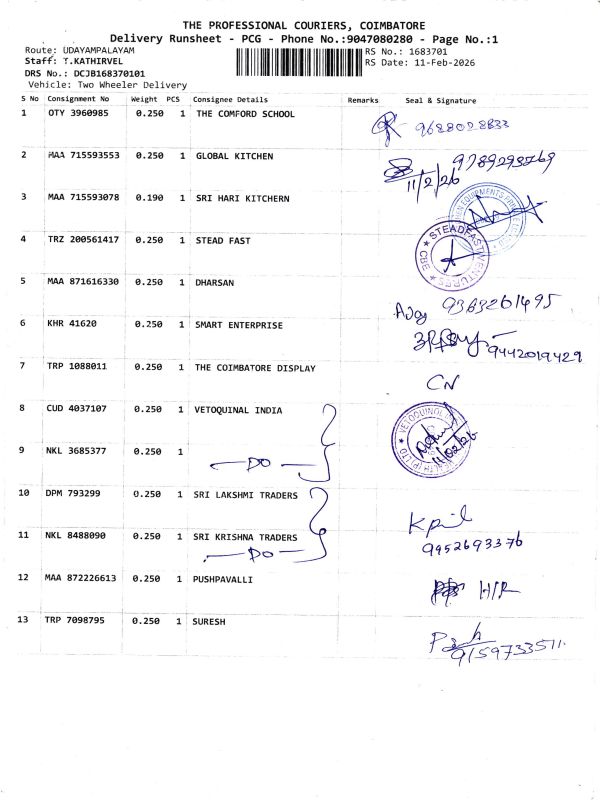 THE PROFESSIONAL COURIERS, COIMBATORE
Delivery Runsheet - PCG - Phone No.:9047080280 - Page No.:1
Route: UDAYAMPALAYAM RS No.: 1683701
Staff: T.KATHIRVEL RS Date: 11-Feb-2026
DRS No.: DCJB168370101
Vehicle: Two Wheeler Delivery
S No Consignment No Weight PCS Consignee Details Remarks Seal & Signature
1 OTY 3960985 0.250 1 THE COMFORD SCHOOL 9688028833
2 MAA 715593553 0.250 1 GLOBAL KITCHEN 9789293769
11/2/26
3 MAA 715593078 0.190 1 SRI HARI KITCHERN
4 TRZ 200561417 0.250 1 STEAD FAST STEADFAST VENTURES CBE
5 MAA 871616330 0.250 1 DHARSAN Ajay 9363261495
6 KHR 41620 0.250 1 SMART ENTERPRISE 9442019429
7 TRP 1088011 0.250 1 THE COIMBATORE DISPLAY CN
8 CUD 4037107 0.250 1 VETOQUINAL INDIA VETOQUINOL
11/02/26
9 NKL 3685377 0.250 1 DO
10 DPM 793299 0.250 1 SRI LAKSHMI TRADERS Kpil
11 NKL 8488090 0.250 1 SRI KRISHNA TRADERS 9952693376
DO
12 MAA 872226613 0.250 1 PUSHPAVALLI H/R
13 TRP 7098795 0.250 1 SURESH
9159733511